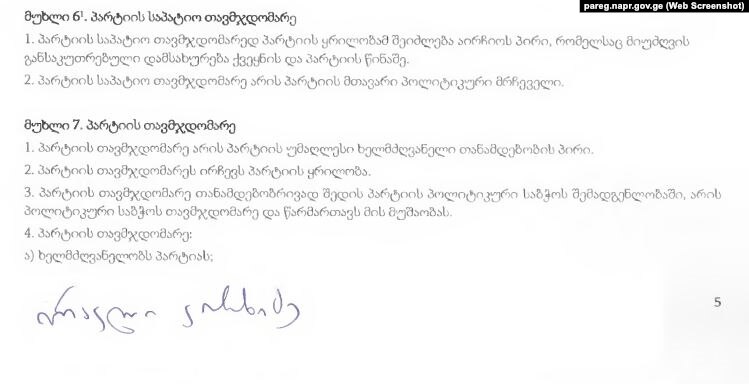 pareg.napr.gov.ge (Web Screenshot)
მუხლი 6¹. პარტიის საპატიო თავმჯდომარე
1. პარტიის საპატიო თავმჯდომარედ პარტიის ყრილობამ შეიძლება აირჩიოს პირი, რომელსაც მიუძღვის
განსაკუთრებული დამსახურება ქვეყნის და პარტიის წინაშე.
2. პარტიის საპატიო თავმჯდომარე არის პარტიის მთავარი პოლიტიკური მრჩეველი.
მუხლი 7. პარტიის თავმჯდომარე
1. პარტიის თავმჯდომარე არის პარტიის უმაღლესი ხელმძღვანელი თანამდებობის პირი.
2. პარტიის თავმჯდომარეს ირჩევს პარტიის ყრილობა.
3. პარტიის თავმჯდომარე თანამდებობრივად შედის პარტიის პოლიტიკური საბჭოს შემადგენლობაში, არის
პოლიტიკური საბჭოს თავმჯდომარე და წარმართავს მის მუშაობას.
4. პარტიის თავმჯდომარე:
ა) ხელმძღვანელობს პარტიას;
ირაკლი
5